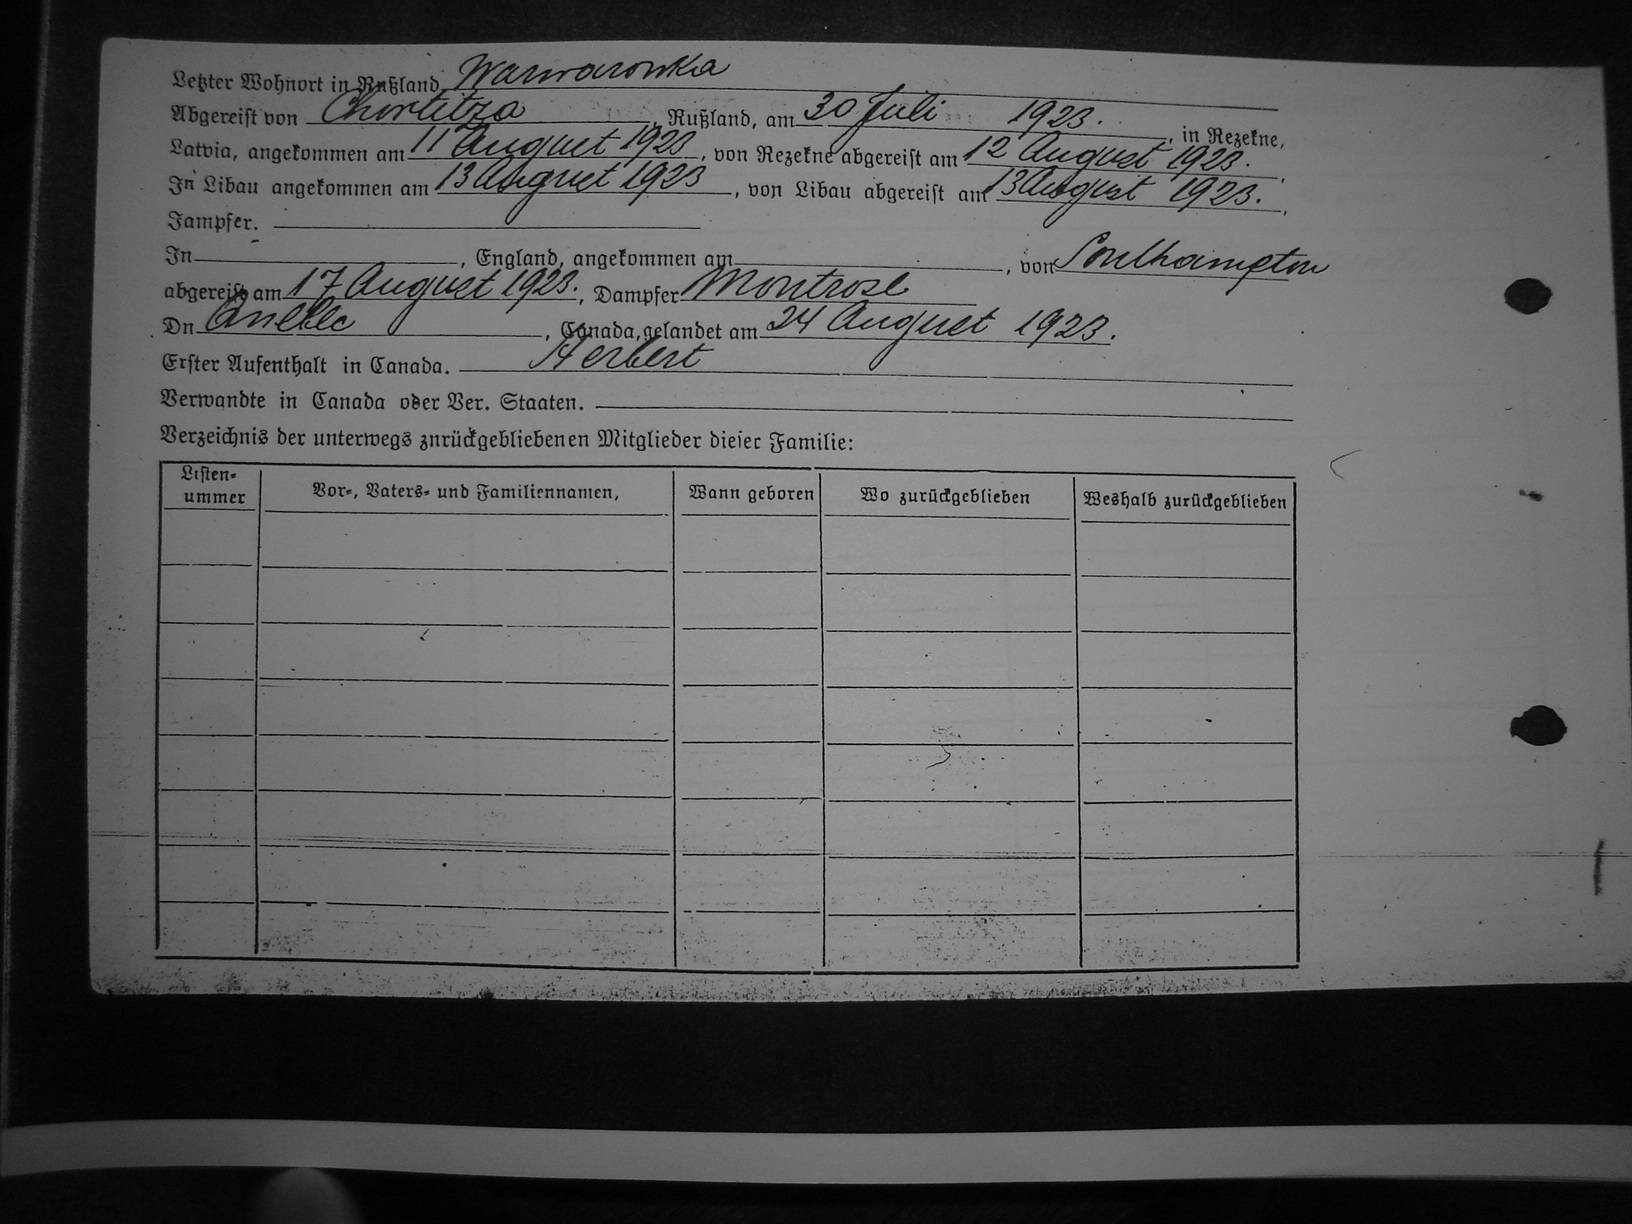 Letzter Wohnort in Rußland Warwarowka
Abgereist von Chortitza, Rußland, am 30 Juli 1923., in Rezekne,
Latvia, angekommen am 11 August 1923, von Rezekne abgereist am 12 August 1923.
In Libau angekommen am 13 August 1923, von Libau abgereist am 13 August 1923.
Jampfer.
In, England, angekommen am, von Southampton
abgereist am 17 August 1923., Dampfer Montrose
Dn Quebec, Canada, gelandet am 24 August 1923.
Erster Aufenthalt in Canada. Herbert
Verwandte in Canada oder Ver. Staaten.
Verzeichnis der unterwegs znrückgebliebenen Mitglieder dieser Familie:
Listen-
ummer
Vor-, Vaters- und Familiennamen,
Wann geboren
Wo zurückgeblieben
Weshalb zurückgeblieben